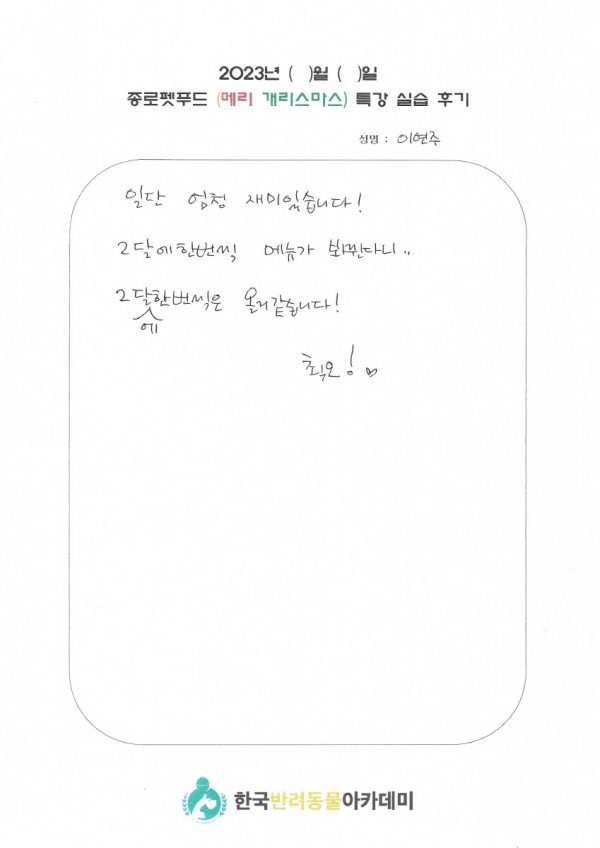 2023년 (  )월 (  )일
종로펫푸드 (메리 개리스마스) 특강 실습 후기
성명 : 이연주
일단 엄청 재미있습니다!
2달에한번씩 메뉴가 바뀐다니..
2달한번씩은 올거같습니다!
에
최고! ♡
한국반려동물아카데미